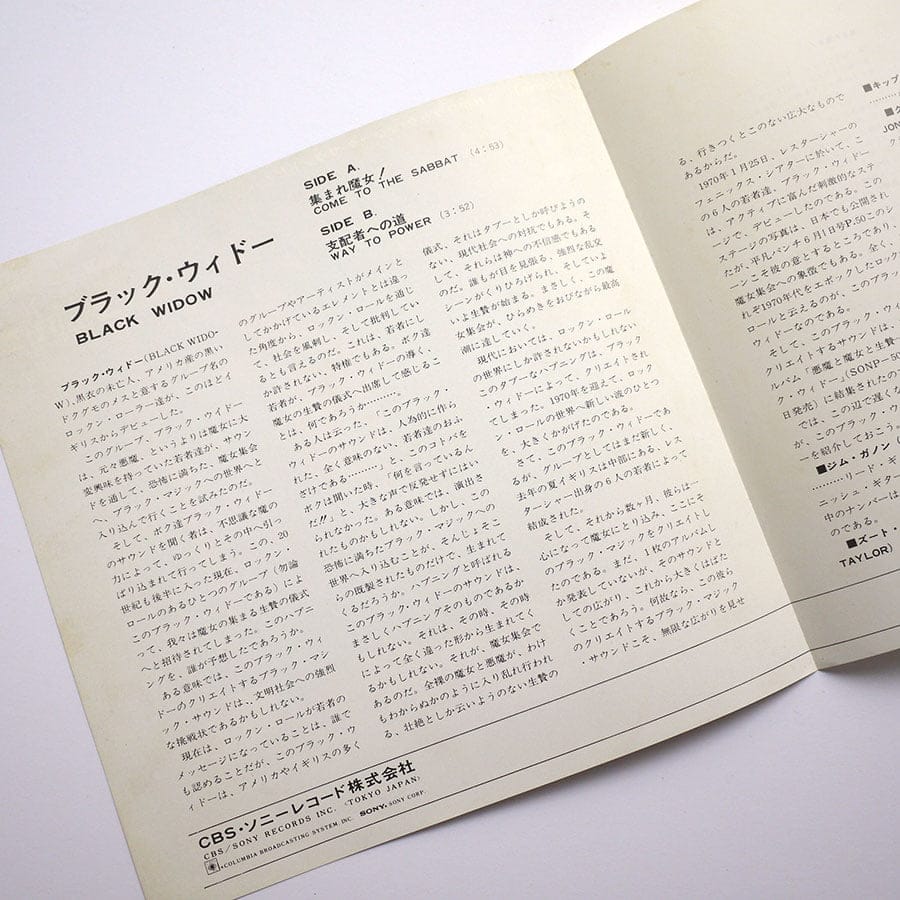 ブラック・ウィドー
BLACK WIDOW
SIDE A.
集まれ魔女!
COME TO THE SABBAT (4:53)
SIDE B.
支配者への道
WAY TO POWER (3:52)
ブラック・ウィドー(BLACK WIDO-
W)、黒衣の未亡人、アメリカ産の黒い
ドクグモのメスと意するグループ名の
ロックン・ローラー達が、このほどイ
ギリスからデビューした。
このグループ、ブラック、ウイドー
は、元々悪魔、というよりは魔女に大
変興味を持っていた若者達が、サウン
ドを通して、恐怖に満った、魔女集会
へ、ブラック・マジックの世界へと
入り込んで行くことを試みたのだ。
そして、ボク達ブラック・ウィドー
のサウンドを聞く者は、不思議な魔の
力によって、ゆっくりとその中へ引っ
ぱり込まれて行ってしまう。この、20
世紀も後半に入った現在、ロックン・
ロールのあるひとつのグループ(勿論
このブラック・ウィドーである)によ
って、我々は魔女の集まる生贄の儀式
へと招待されてしまった。このハプニ
ングを、誰が予想したであろうか。
ある意味では、このブラック・ウィ
ドーのクリエイトするブラック・マジ
ック・サウンドは、文明社会への強烈
な挑戦状であるかもしれない。
現在は、ロックン・ロールが若者の
メッセージになっていることは、誰で
も認めることだが、このブラック・ウ
ィドーは、アメリカやイギリスの多く
のグループやアーティストがメインと
してかかげているエレメントとは違っ
た角度から、ロックン・ロールを通じ
て、社会を風刺し、そして批判してい
るとも言えるのだ。これは、若者にし
か許されない、特権でもある。ボク達
若者が、ブラック・ウィドーの導く、
魔女の生贄の儀式へ出席して感じるこ
とは、何であろうか………。
ある人は云った、「このブラック・
ウィドーのサウンドは、人為的に作ら
れた、全く意味のない、若者達のおふ
ざけである………」と、このコトバを
ボクは聞いた時、「何を言っているん
だ!!」と、大きな声で反発せずにはい
られなかった。ある意味では、演出さ
れたものかもしれない。しかし、この
恐怖に満ちたブラック・マジックへの
世界へ入り込むことが、そんじょそこ
らの既製されたものだけで、生まれて
くるだろうか。ハプニングと呼ばれる
このブラック・ウィドーのサウンドは、
まさしくハプニングそのものであるか
もしれない。それは、その時、その時
によって全く違った形から生まれてく
るかもしれない。それが、魔女集会で
あるのだ。全裸の魔女と悪魔が、わけ
もわからぬかのように入り乱れ行われ
る、壮絶としか云いようのない生贄の
儀式、それはタブーとしか呼びようの
ない、現代社会への対抗でもある。そ
して、それらは神への不信感でもある
のだ。誰もが目を見張る、強烈な乱交
シーンがくりひろげられ、そしていよ
いよ生贄が始まる。まさしく、この魔
女集会が、ひらめきをおびながら最高
潮に達していく。
現代においては、ロックン・ロール
の世界にしか許されないかもしれない
このタブーなハプニングは、ブラック
・ウィドーによって、クリエイトされ
てしまった。1970年を迎えて、ロック
ン・ロールの世界へ新しい波のひとつ
を、大きくかかげたのである。
さて、このブラック・ウィドーであ
るが、グループとしてはまだ新しく、
去年の夏イギリスは中部にある、レス
ターシャー出身の6人の若者によって
結成された。
そして、それから数ヶ月、彼らは一
心になって魔女にとり込み、ここにそ
のブラック・マジックをクリエイトし
たのである。まだ、1枚のアルバムし
か発表していないが、そのサウンドと
しての広がり、これから大きくはばた
くことであろう。何故なら、この彼ら
のクリエイトするブラック・マジック
・サウンドこそ、無限な広がりを見せ
る、行きつくとこのない広大なもので
あるからだ。
1970年1月25日、レスターシャーの
フェニックス・シアターに於いて、こ
の6人の若者達、ブラック・ウィドー
は、アクティブに富んだ刺激的なステ
ージで、デビューしたのである。この
ステージの写真は、日本でも公開され
たが、平凡パンチ6月1日号P.50このシ
ーンこそ彼の意とするところであり、
魔女集会への象徴でもある。全く、
れぞ1970年代をエポックしたロック
ロールと云えるのが、このブラック
ウィドーなのである。
そして、このブラック・ウィ
クリエイトするサウンドは、
アルバム「悪魔と魔女と生贄
ク・ウィドー」(SONP-50
日発売)に結集されたの
では、この辺で遅くな
が、このブラック・ウ
ーを紹介しておこう。
■ジム・ガノン(
………リード・ギ
ニッシュ・ギタ
中のナンバーは
のである。
■ズート・
TAYLOR)
■キップ
JON
CBS・ソニーレコード株式会社
CBS/SONY RECORDS INC. (TOKYO JAPAN)
COLUMBIA BROADCASTING SYSTEM, INC. SONY, SONY CORP.